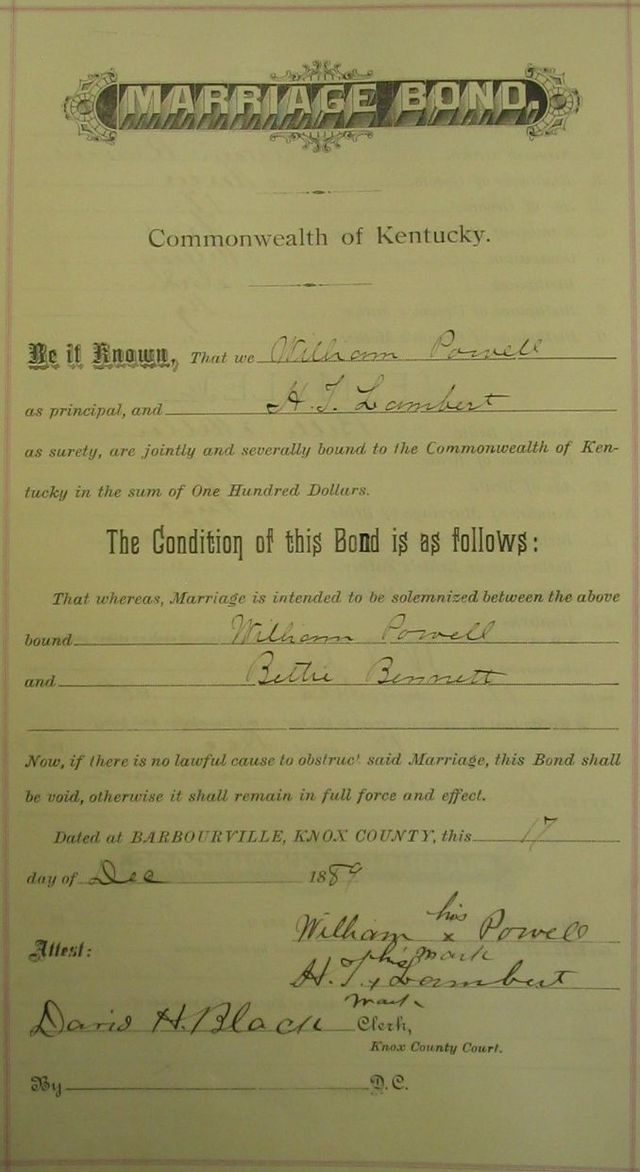 MARRIAGE BOND.
Commonwealth of Kentucky.
Be it Known, That we William Powell
as principal, and H. T. Lambert
as surety, are jointly and severally bound to the Commonwealth of Ken-
tucky in the sum of One Hundred Dollars.
The Condition of this Bond is as follows:
That whereas, Marriage is intended to be solemnized between the above
bound William Powell
and Bettie Bennett
Now, if there is no lawful cause to obstruct said Marriage, this Bond shall
be void, otherwise it shall remain in full force and effect.
Dated at BARBOURVILLE, KNOX COUNTY, this 17
day of Dec 1889
his
William x Powell
mark
Attest:
his
H. T. x Lambert
mark
David H. Black Clerk,
Knox County Court.
By D. C.